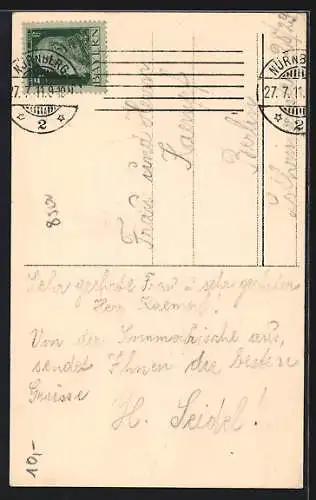 NÜRNBERG
27.7.11.9-10N
2
BAYERN
NÜRNB
27.7.11.
2
Frau und Herrn
Kaempf
Berlin
8500
Sehr geehrte Frau u sehr geehrter
Herr Kaempf!
Von der Sommerfrische aus,
sendet Ihnen die besten
Grüsse
H. Seidel!
10,-